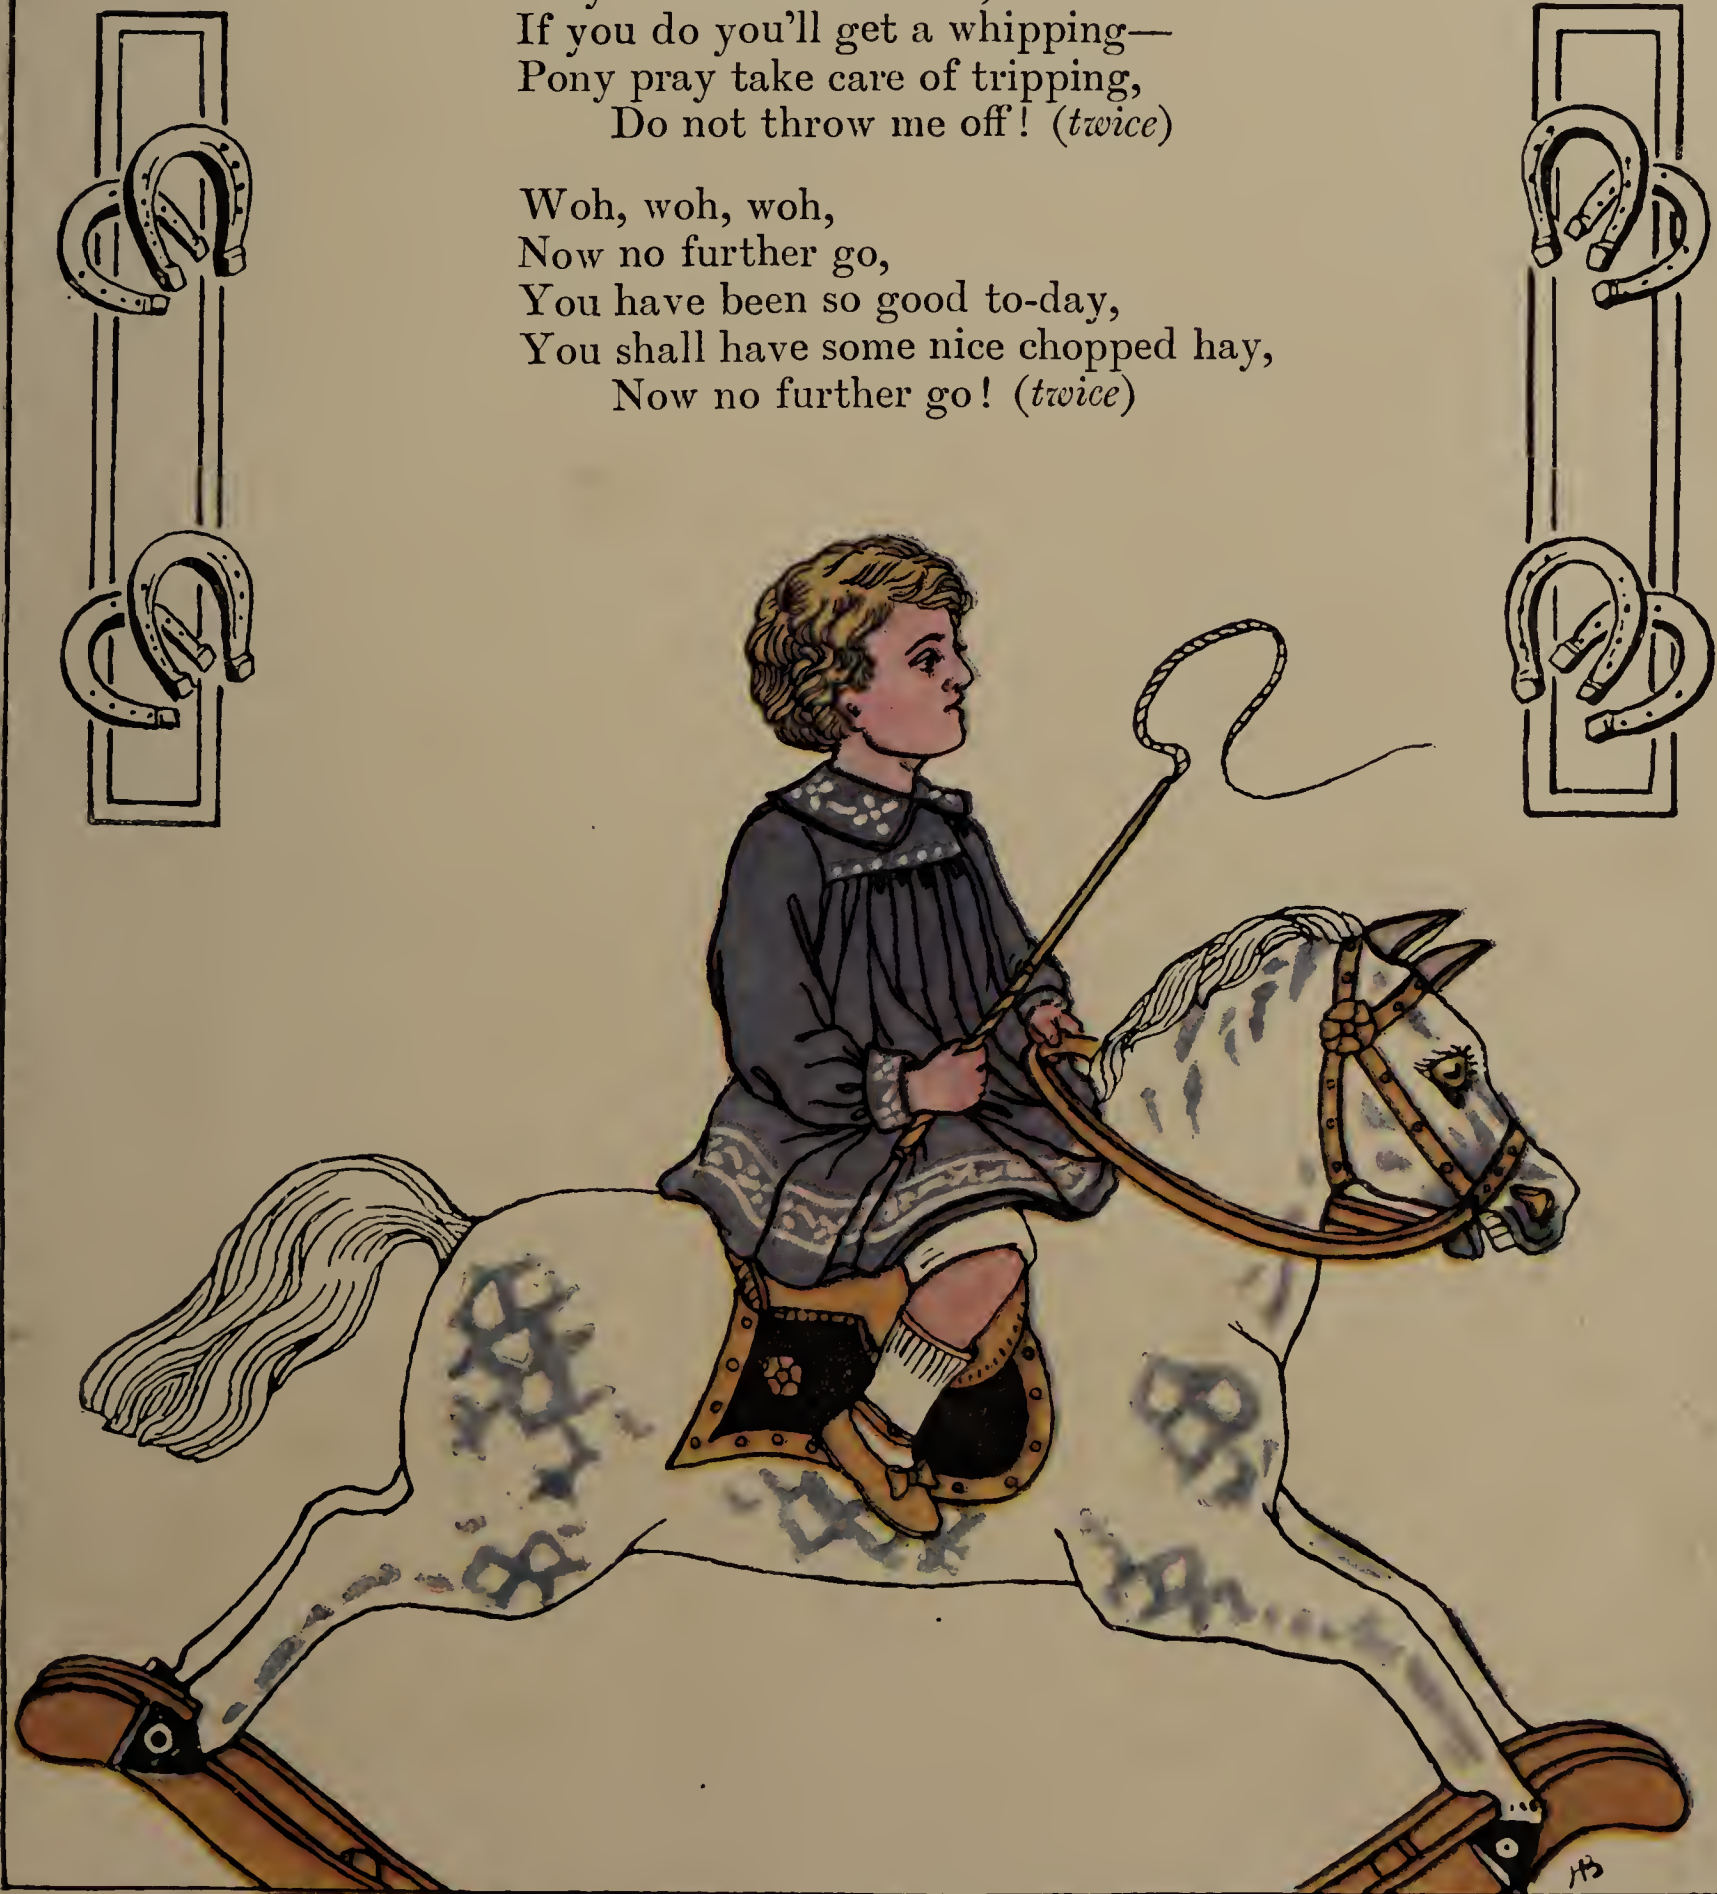 If you do you'll get a whipping—
Pony pray take care of tripping,
Do not throw me off! (twice)
Woh, woh, woh,
Now no further go,
You have been so good to-day,
You shall have some nice chopped hay,
Now no further go! (twice)
HB